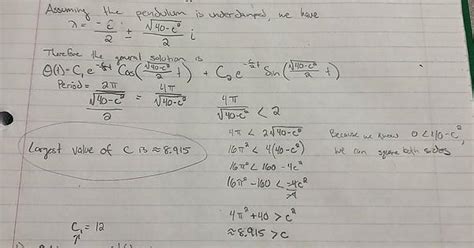 Assuming the pendulum is underdamped, we have
λ = -c/2 ± √(40-c²)/2 i
Therefore the general solution is
Θ(t) = C₁ e^(-c/2 t) Cos(√(40-c²)/2 t) + C₂ e^(-c/2 t) Sin(√(40-c²)/2 t)
Period = 2π/(√(40-c²)/2) = 4π/√(40-c²)
4π/√(40-c²) < 2
4π < 2√(40-c²)
Because we know 0<40-c²,
we can square both sides
16π² < 4(40-c²)
16π² < 160-4c²
16π²-160 < -4c²
4π²+40 > c²
≈8.915 > c
Largest value of C is ≈ 8.915
C₁ = 12